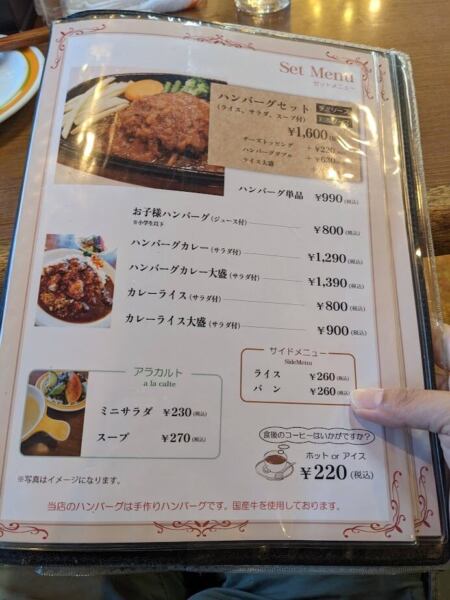 Set Menu
セットメニュー
ハンバーグセット
(ライス、サラダ、スープ付)
¥1,600
チーズトッピング +¥220
ハンバーグダブル +¥630
ライス大盛
ハンバーグ単品 ¥990(税込)
お子様ハンバーグ(ジュース付) ¥800(税込)
※小学生以下
ハンバーグカレー(サラダ付) ¥1,290(税込)
ハンバーグカレー大盛(サラダ付) ¥1,390(税込)
カレーライス(サラダ付) ¥800(税込)
カレーライス大盛(サラダ付) ¥900(税込)
サイドメニュー
SideMenu
ライス ¥260(税込)
パン ¥260(税込)
アラカルト
a la calte
ミニサラダ ¥230(税込)
スープ ¥270(税込)
食後のコーヒーはいかがですか?
ホット or アイス
¥220(税込)
※写真はイメージになります。
当店のハンバーグは手作りハンバーグです。国産牛を使用しております。